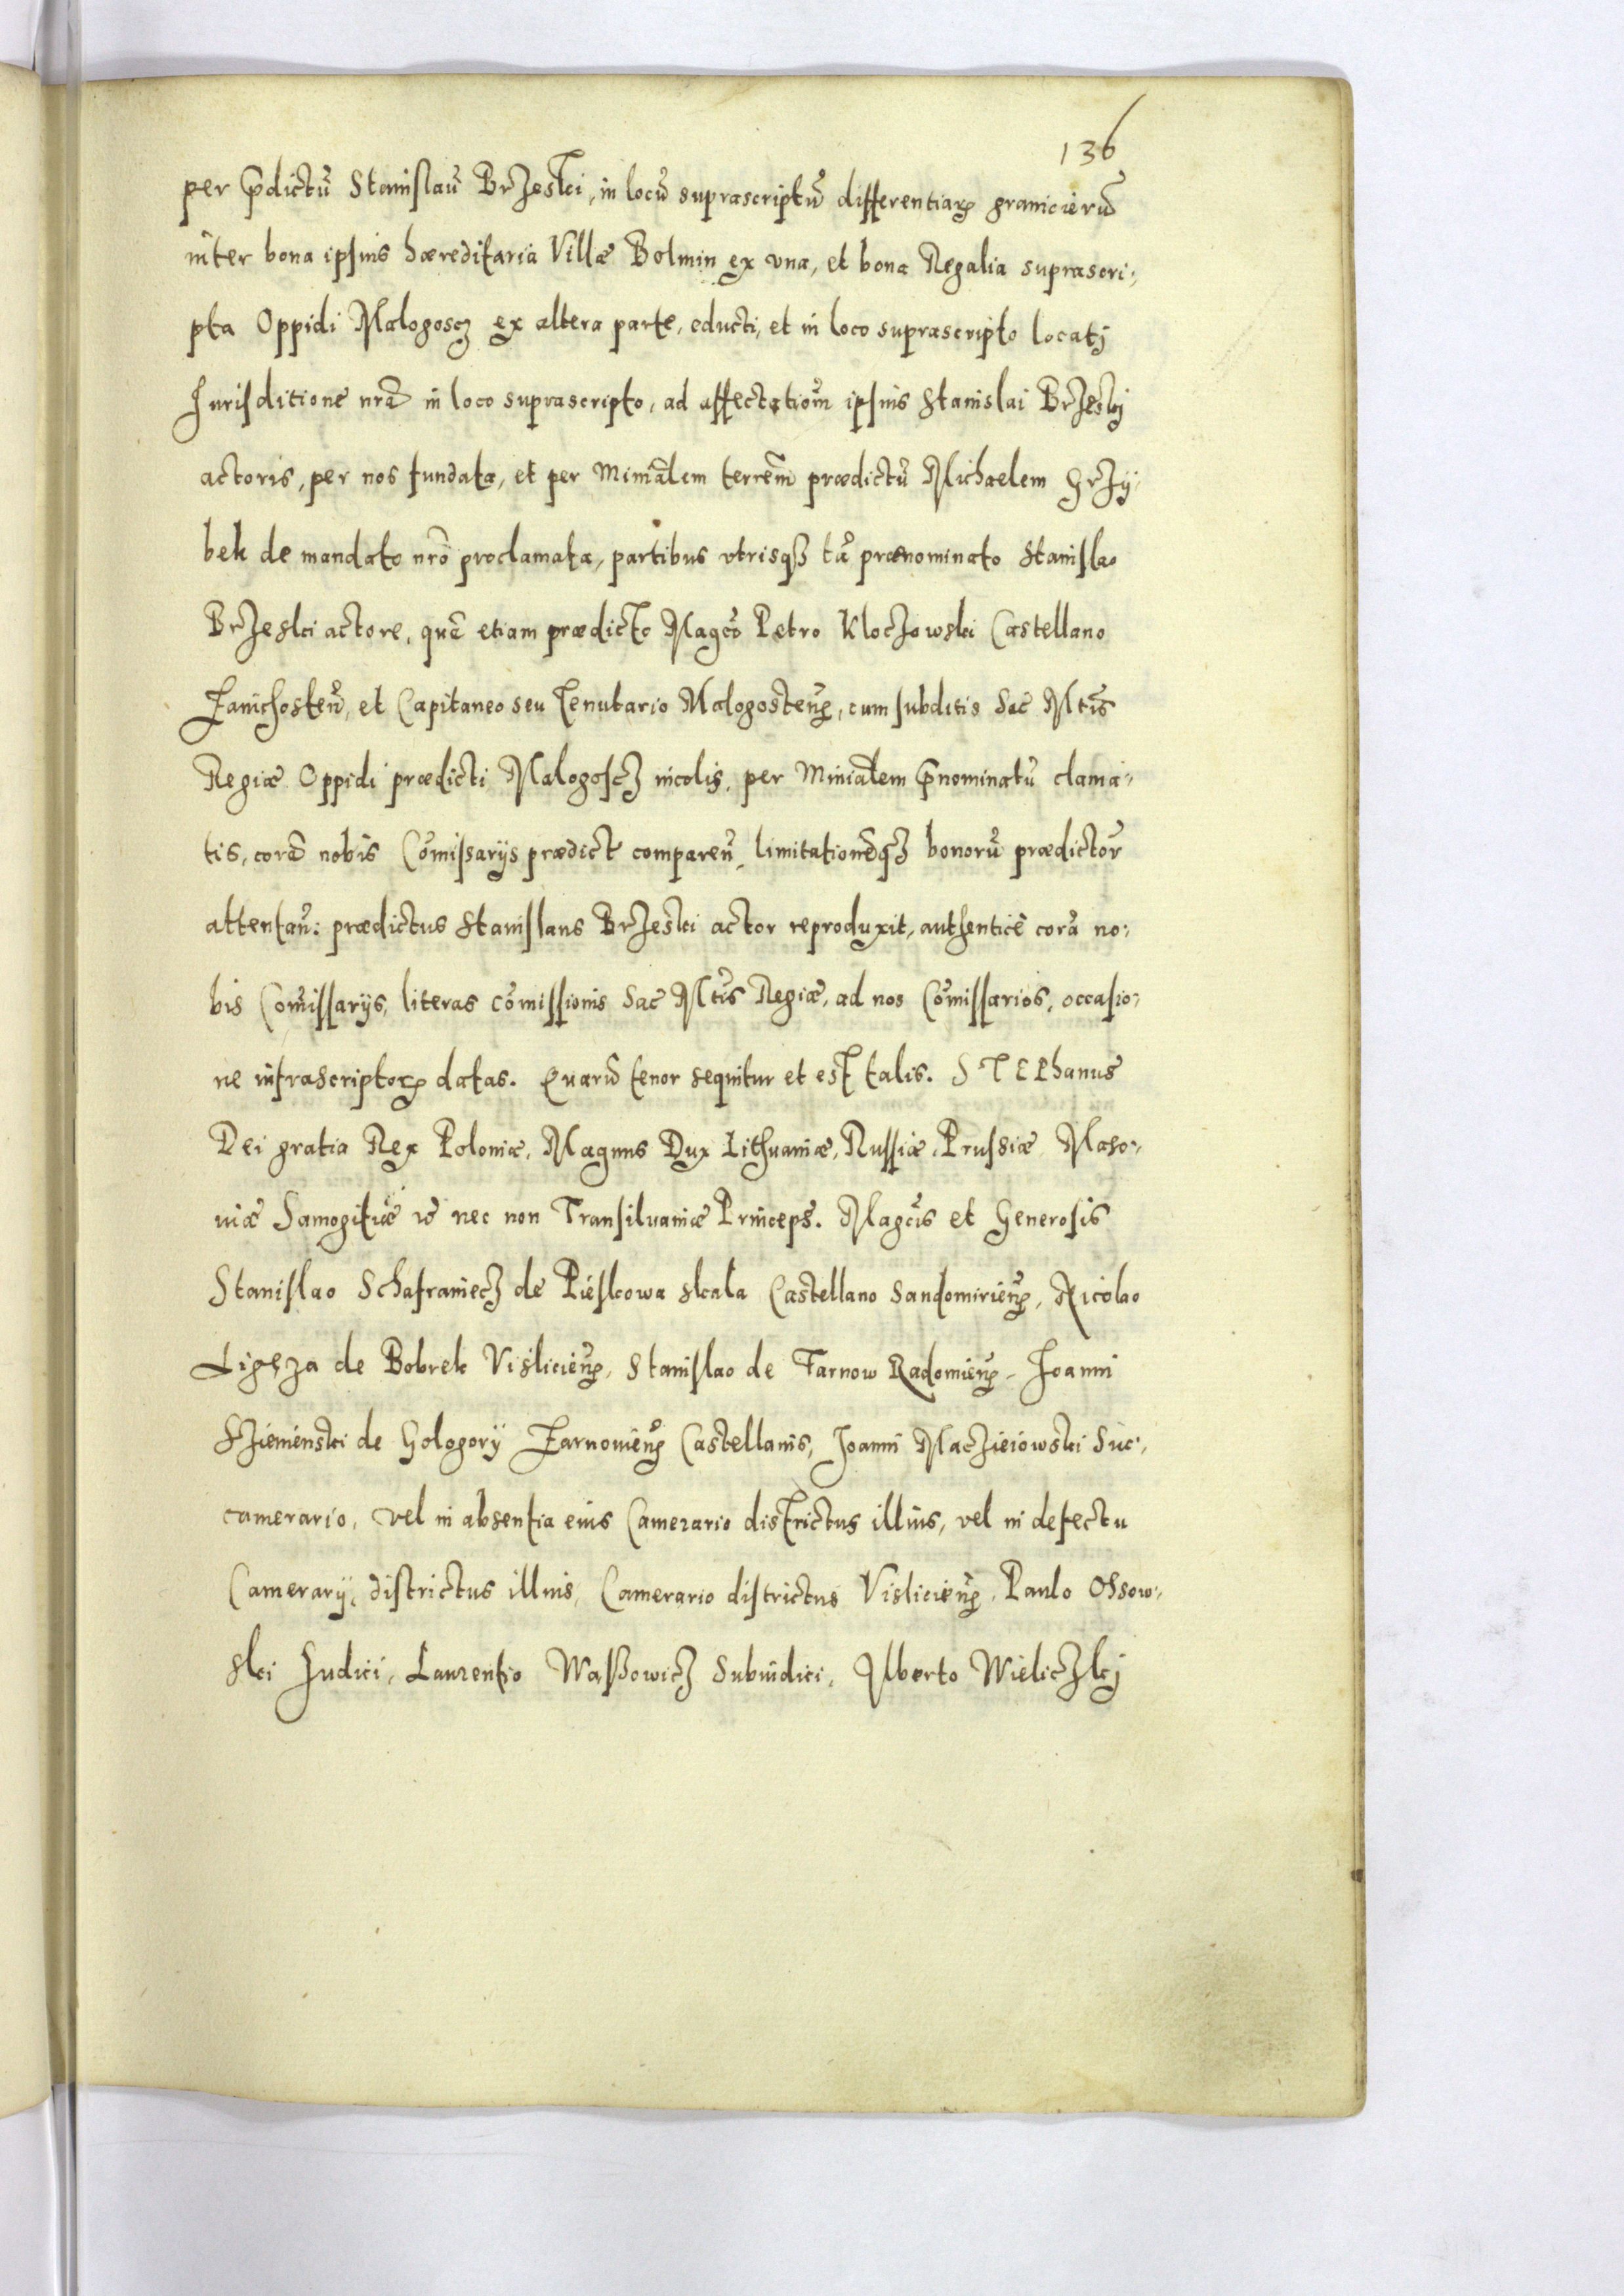 136
per p̄dictū Stanislaū Brzeski, in locū suprascriptū differentiarꝝ granicierū
inter bona ipsius hæreditaria Villæ Bolmin ex vna, et bona Regalia suprascri-
pta Oppidi Malogoscz ex altera parte, educti, et in loco suprascripto locatj
Jurisditione nrā in loco suprascripto, ad affectatioem̄ ipsius Stanislai Brzeskj
actoris, per nos fundata, et per Miniālem terrēm prædictū Michaelem Grzy-
bek de mandato nrō proclamata, partibus vtrisqꝫ tā prænominato Stanislao
Brzeski actore, quā etiam prædicto Magcō Petro Kloczowski Castellano
Zawichosten̄, et Capitaneo seu Tenutario Malogosten̄, cum subditis Sac Mtis̄
Regiæ Oppidi prædicti Malogoscz incolis, per Miniālem p̄nominatū clama-
tis, corā nobis Cōmissarijs prædict comparen̄, limitationēqꝫ bonorū prædictor̄
attentan̄: prædictus Stanislaus Brzeski actor reproduxit, authenticè corā no-
bis Com̄issarijs, literas cōmissionis Sac Mtis̄ Regiæ, ad nos Cōmissarios, occasio-
ne infrascriptorꝝ datas. Quarū tenor sequitur et est talis. STEPhanus
Dei gratia Rex Poloniæ, Magnus Dux Lithuaniæ, Russiæ, Prussiæ Maso-
uiæ Samogitiæ &c nec non Transiluaniæ Princeps. Magcīs et Generosis
Stanislao Schafraniecz de Pieskowa skala Castellano Sandomirien̄, Nicolao
Ligęza de Bobrek Vislicien̄, Stanislao de Tarnow Radomien̄, Joanni
Sziemienski de Gologory Zarnouien̄ Castellanis, Joanni Maczieiowski Suc-
camerario, vel in absentia eius Camerario districtus illius, vel in defectu
Camerarij districtus illius, Camerario districtus Vislicien̄, Paulo Ossow-
ski Judici, Laurentio Waßowicz Subiudici, Alberto Wieliczkj